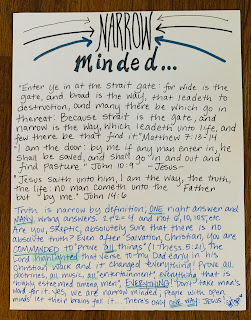 NARROW
minded...
"Enter ye in at the strait gate: for wide is the
gate, and broad is the way, that leadeth to
destruction, and many there be which go in
thereat: Because strait is the gate, and
narrow is the way, which leadeth unto life, and
few there be that find it." Matthew 7:13-14
"I am the door: by me if any man enter in, he
shall be saved, and shall go in and out and
find pasture." John 10:9 -Jesus-
"Jesus saith unto him, I am the way, the truth,
the life: no man cometh unto the Father
but by me." John 14:6
Truth is narrow by definition, ONE right answer and
MANY wrong answers. 2+2=4 and not 6, 10, 105, etc.
Are you, Skeptic, absolutely sure that there is no
absolute truth? Even after Salvation, Christian, you are
COMMANDED to "Prove all things" (1 Thess. 5:21). The
Lord highlighted that verse to my Dad early in his
Christian walk and it changed everything! Prove all
doctrines, all music, all "entertainment", everything that is
"highly esteemed among men", EVERYTHING! Don't take man's
word for it. Yes, we are narrow minded. People with open
minds let their brains fall out... There's only ONE WAY: Jesus